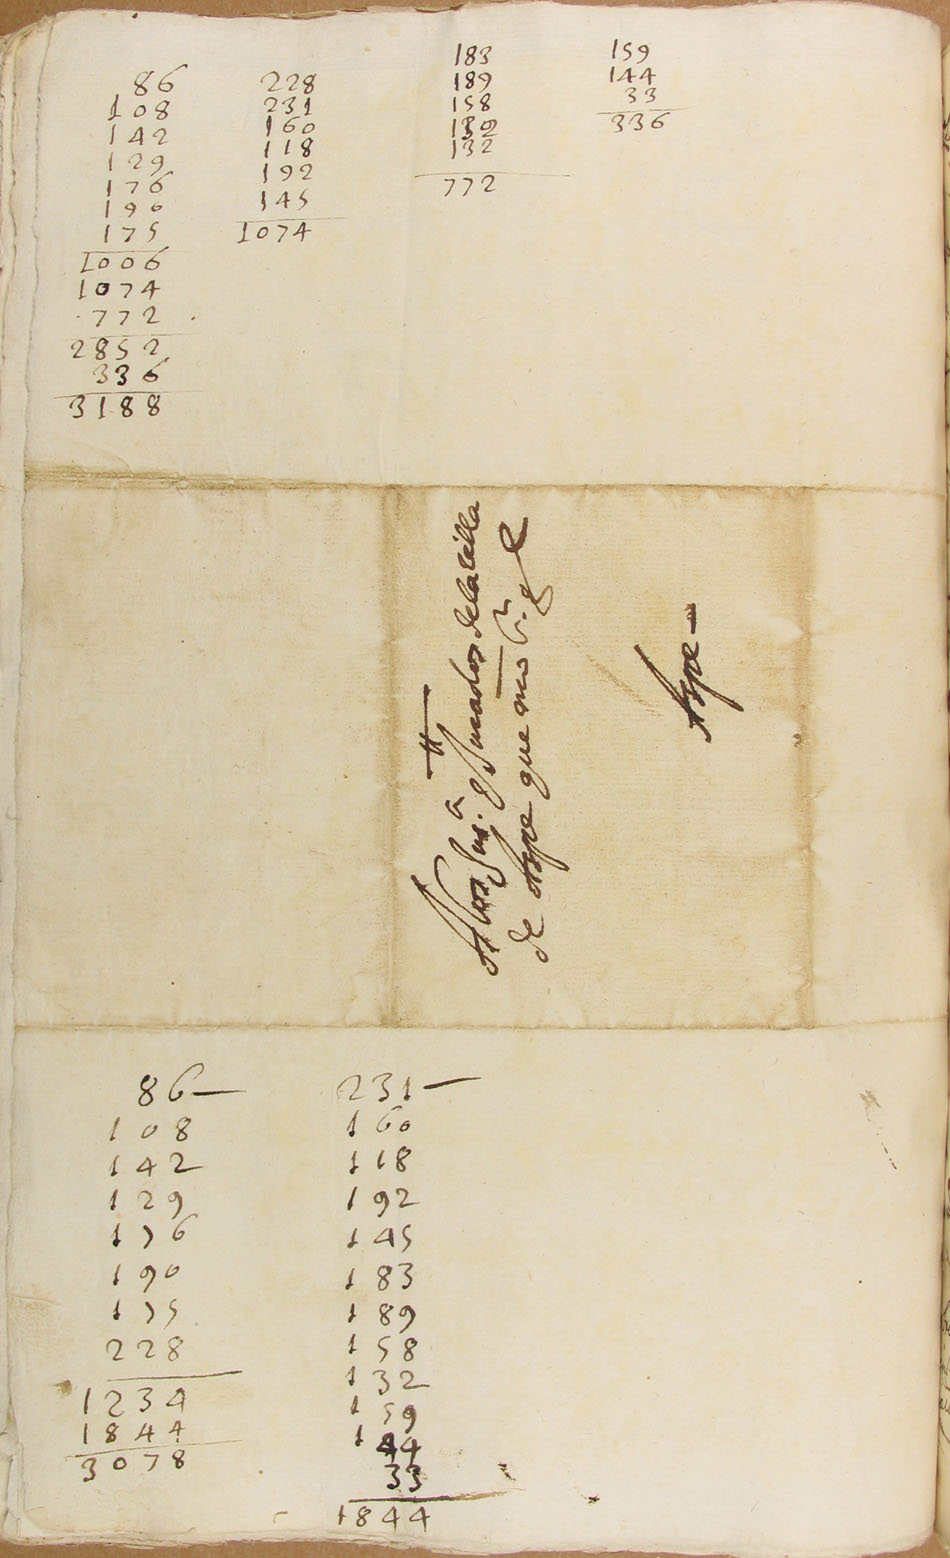 86
108
142
129
176
190
175
1006
1074
772
2852
336
3188
228
231
160
118
192
145
1074
183
189
158
132
772
159
144
33
336
A los Jus.ª e Jurados dela villa
de Aspe que nro S.r g.e
Aspe
86
108
142
129
176
190
175
228
1234
1844
3078
231
160
118
192
145
183
189
158
132
159
144
33
1844